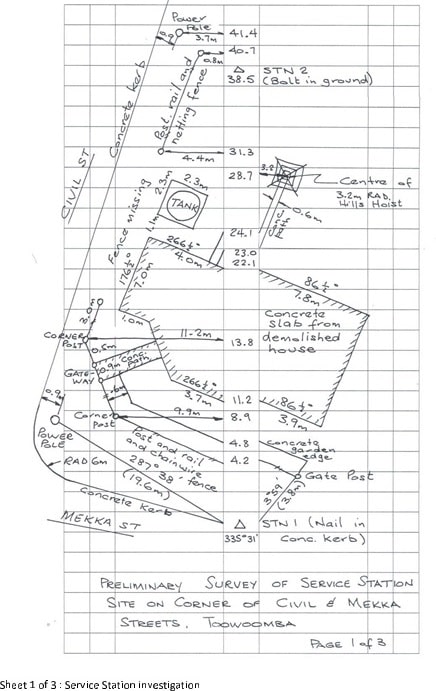 Power
Pole
0.9
3.7m
41.4
40.7
0.8m
STN 2
38.5 (Bolt in ground)
Concrete kerb
Post, rail and
netting fence
CIVIL ST
31.3
4.4m
28.7
3.2
Centre of
3.2m RAD.
Hills Hoist
0.6m
Conc.
Path
Fence missing
2.3m
2.3m
TANK
1.1m
24.1
23.0
22.1
266½°
4.0m
176½°
7.0m
86½°
7.8m
Concrete
slab from
demolished
house
1.0m
3.0m
CORNER
POST
11.2m
13.8
0.5m
Conc.
path
0.9m
GATE-
WAY
266½°
3.7m
11.2
86½°
3.9m
0.9
9.9m
8.9
Corner
post
POWER
POLE
4.8
concrete
garden
edge
4.2
Post and rail
and chainwire
fence
287° 38'
(19.6m)
Gate Post
3°59'
(3.8m)
RAD 6m
Concrete kerb
MEKKA ST
STN 1 (Nail in
Conc. kerb)
335°31'
PRELIMINARY SURVEY OF SERVICE STATION
SITE ON CORNER OF CIVIL & MEKKA
STREETS, TOOWOOMBA
PAGE 1 of 3
Sheet 1 of 3 : Service Station investigation